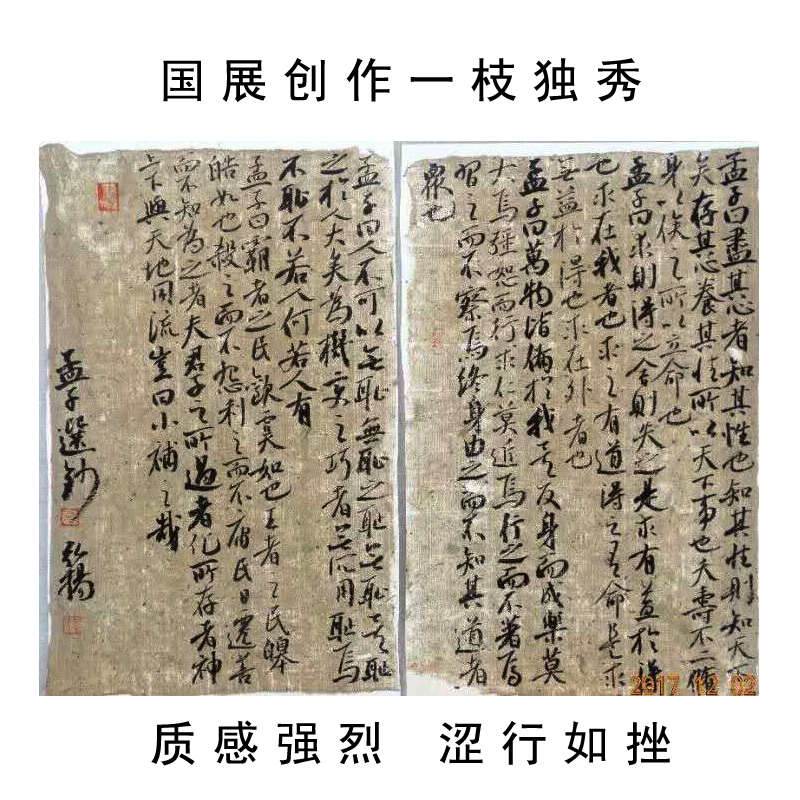 国展创作一枝独秀
孟子曰盡其心者知其性也知其性則知天
矣存其心養其性所以天下事也夭壽不二脩
身以俟之所以立命也
孟子曰求則得之舍則失之是求有益於得
也求在我者也求之有道得之有命是求
無益於得也求在外者也
孟子曰萬物皆備於我矣反身而成樂莫
大焉彊恕而行求仁莫近焉行之而不著焉
習之而不察焉終身由之而不知其道者
眾也
孟子曰人不可以無恥無恥之恥無恥矣恥
之於人大矣為機變之巧者無所用恥焉
不恥不若人何若人有
孟子曰霸者之民歡虞如也王者之民皞
皓如也殺之而不怨利之而不庸民日遷善
而不知為之者夫君子之所過者化所存者神
上下與天地同流豈曰小補之哉
孟子選鈔 弘揚
2017 12 02
质感强烈 涩行如挫